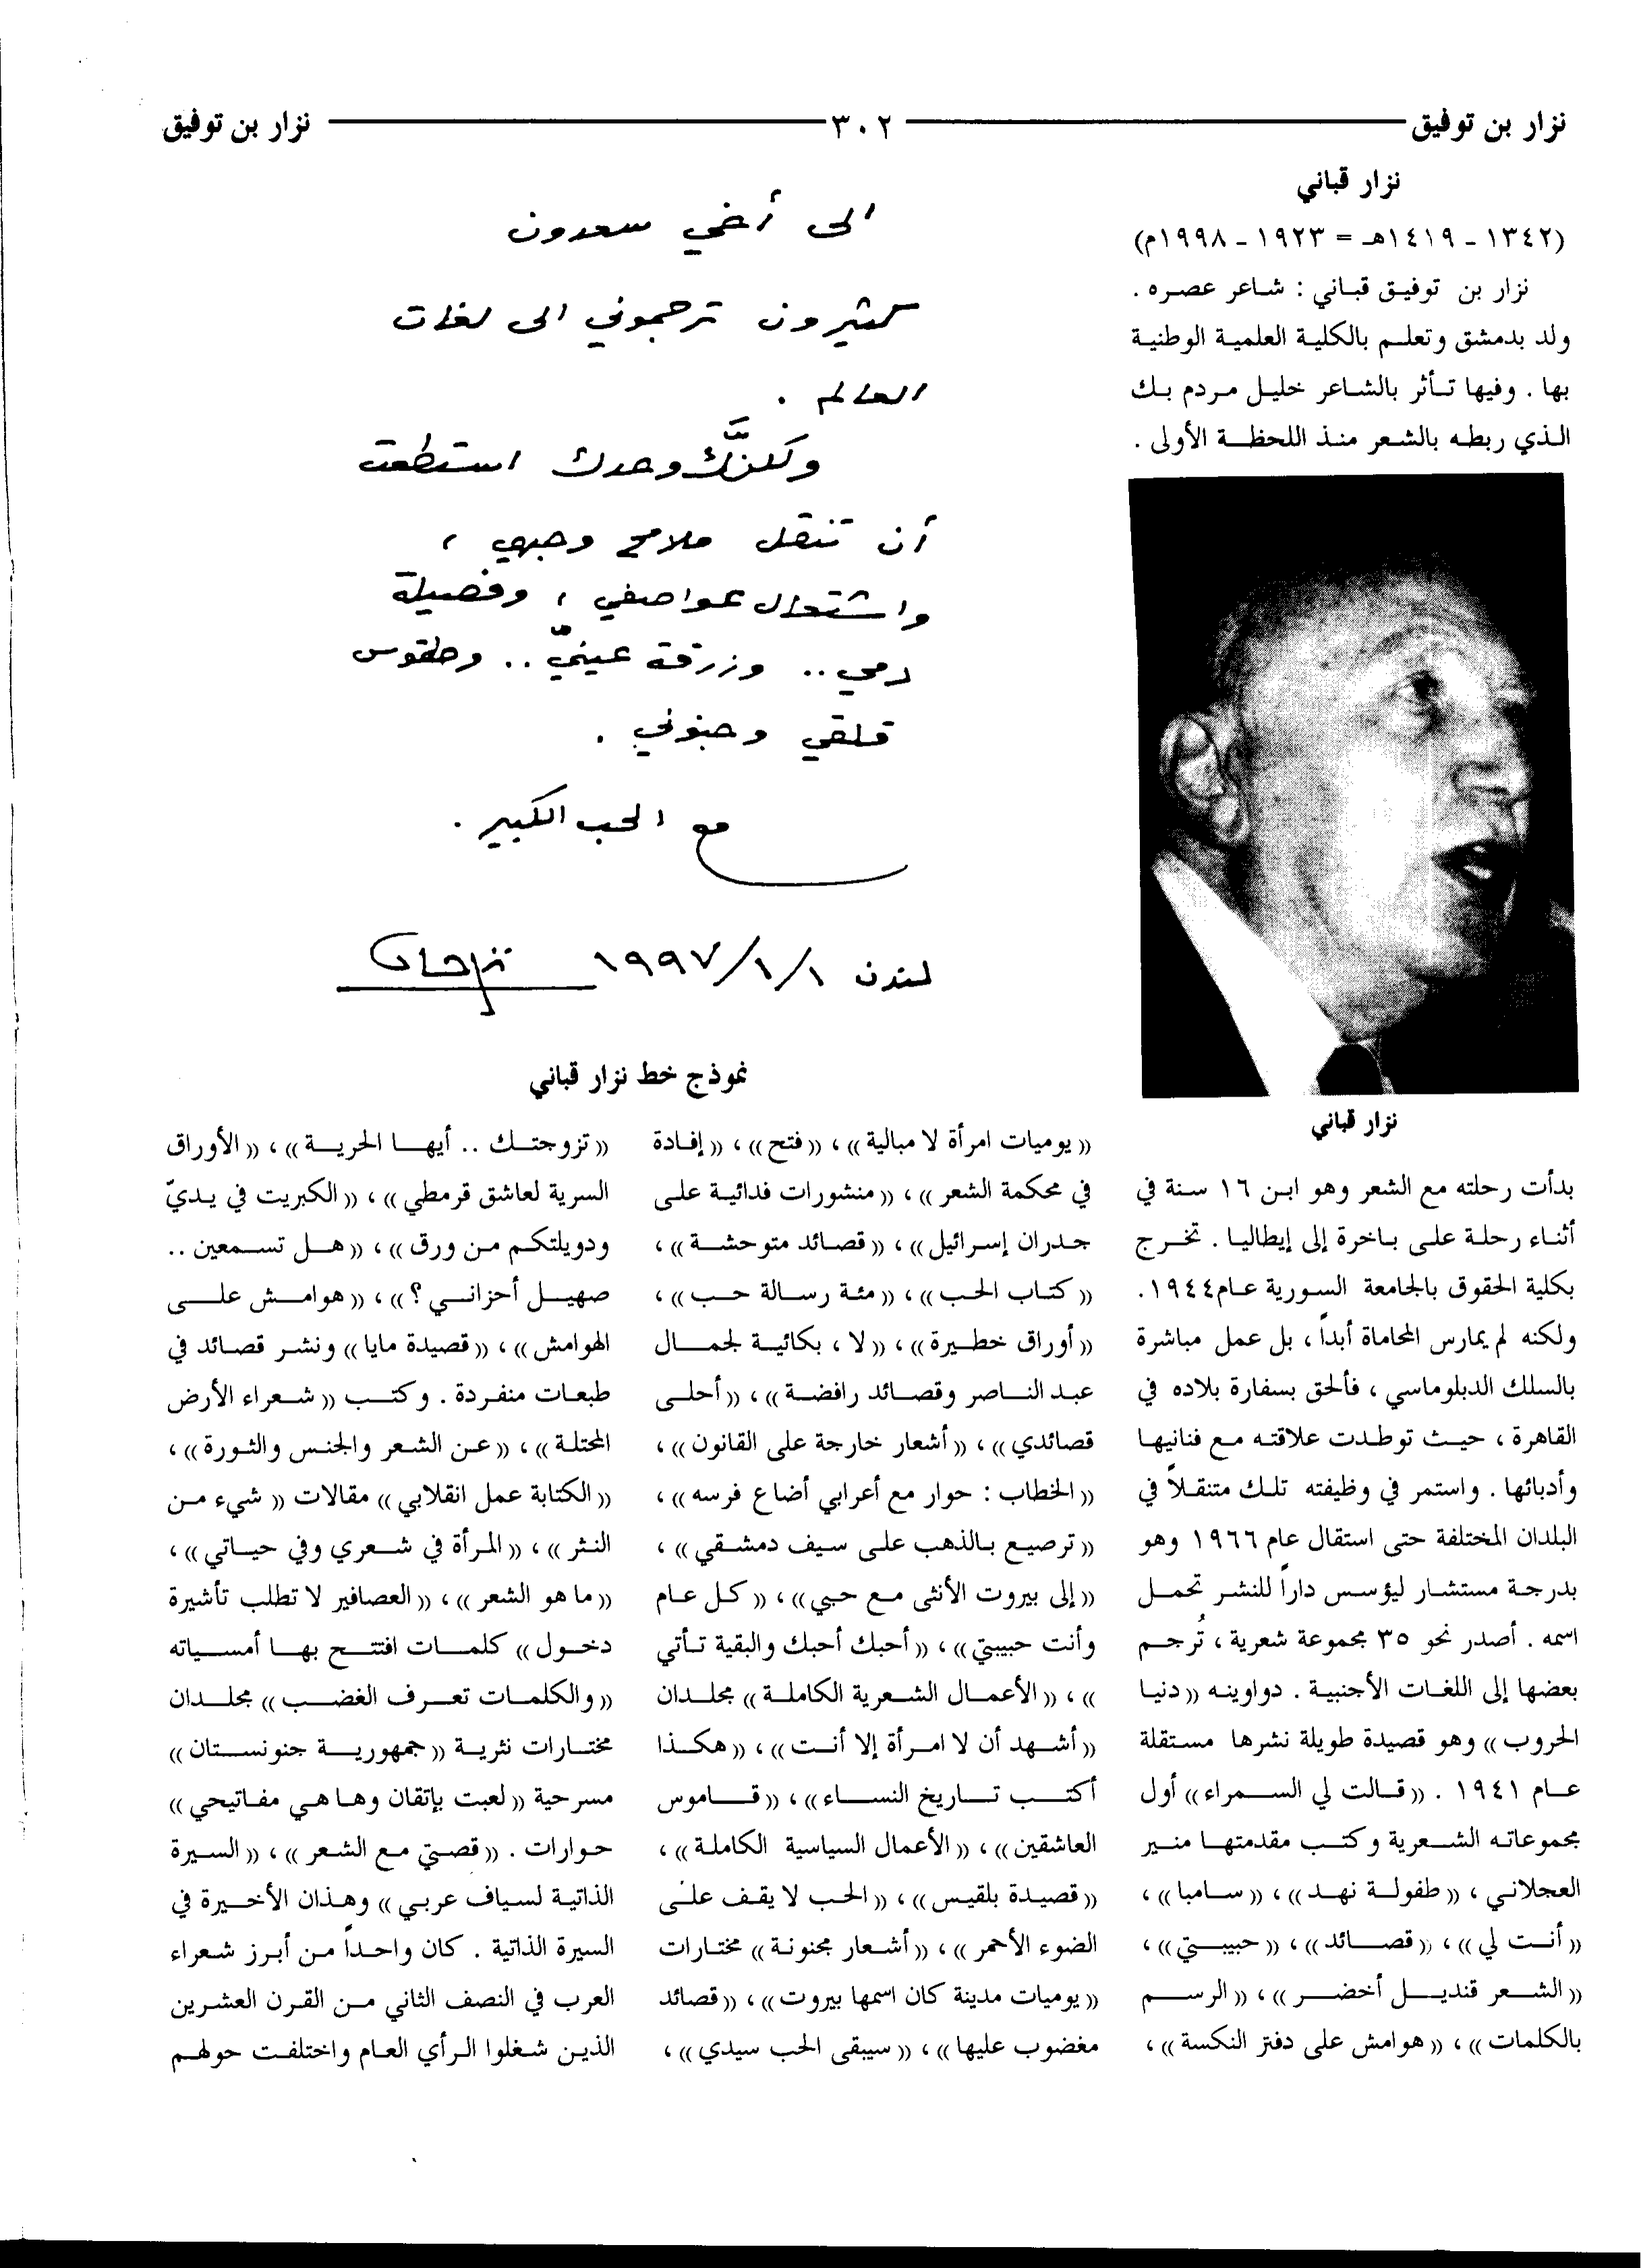 نزار بن توفيق ٣٠٢ نزار بن توفيق
نزار قباني
(١٣٤٢ - ١٤١٩هـ = ١٩٢٣ - ١٩٩٨م)
نزار بن توفيق قباني : شاعر عصره .
ولد بدمشق وتعلم بالكلية العلمية الوطنية
بها . وفيها تأثر بالشاعر خليل مردم بك
الذي ربطه بالشعر منذ اللحظة الأولى .
نزار قباني
بدأت رحلته مع الشعر وهو ابن ١٦ سنة في
أثناء رحلة على باخرة إلى إيطاليا . تخرج
بكلية الحقوق بالجامعة السورية عام١٩٤٤.
ولكنه لم يمارس المحاماة أبداً ، بل عمل مباشرة
بالسلك الدبلوماسي ، فألحق بسفارة بلاده في
القاهرة ، حيث توطدت علاقته مع فنانيها
وأدبائها . واستمر في وظيفته تلك متنقلاً في
البلدان المختلفة حتى استقال عام ١٩٦٦ وهو
بدرجة مستشار ليؤسس داراً للنشر تحمل
اسمه . أصدر نحو ٣٥ مجموعة شعرية ، تُرجم
بعضها إلى اللغات الأجنبية . دواوينه «دنيا
الحروب» وهو قصيدة طويلة نشرها مستقلة
عام ١٩٤١ . «قالت لي السمراء» أول
مجموعاته الشعرية وكتب مقدمتها منير
العجلاني ، «طفولة نهد»، «سامبا»،
«أنت لي»، «قصائد»، «حبيبتي»،
«الشعر قنديل أخضر»، «الرسم
بالكلمات»، «هوامش على دفتر النكسة»،
الى أخي سعدون
كثيرون ترجموني الى لغات
العالم .
ولكنَّك وحدك استطعت
أن تنقل ملامح وجهي ،
واشتعال عواصفي ، وفصيلة
دمي .. وزرقة عينيّ .. وطقوس
قلقي وجنوني .
مع الحب الكبير .
لندن ١/١/١٩٩٧ نزار قباني
نموذج خط نزار قباني
«يوميات امرأة لا مبالية»، «فتح»، «إفادة
في محكمة الشعر»، «منشورات فدائية على
جدران إسرائيل»، «قصائد متوحشة»،
«كتاب الحب»، «مئة رسالة حب»،
«أوراق خطيرة»، «لا ، بكائية لجمال
عبد الناصر وقصائد رافضة»، «أحلى
قصائدي»، «أشعار خارجة على القانون»،
«الخطاب : حوار مع أعرابي أضاع فرسه»،
«ترصيع بالذهب على سيف دمشقي»،
«إلى بيروت الأنثى مع حبي»، «كل عام
وأنت حبيبتي»، «أحبك أحبك والبقية تأتي
»، «الأعمال الشعرية الكاملة» مجلدان
«أشهد أن لا امرأة إلا أنت»، «هكذا
أكتب تاريخ النساء»، «قاموس
العاشقين»، «الأعمال السياسية الكاملة»،
«قصيدة بلقيس»، «الحب لا يقف على
الضوء الأحمر»، «أشعار مجنونة» مختارات
«يوميات مدينة كان اسمها بيروت»، «قصائد
مغضوب عليها»، «سيبقى الحب سيدي»،
«تزوجتك .. أيها الحرية»، «الأوراق
السرية لعاشق قرمطي»، «الكبريت في يديّ
ودويلتكم من ورق»، «هل تسمعين ..
صهيل أحزاني ؟»، «هوامش على
الهوامش»، «قصيدة مايا» ونشر قصائد في
طبعات منفردة . وكتب «شعراء الأرض
المحتلة»، «عن الشعر والجنس والثورة»،
«الكتابة عمل انقلابي» مقالات «شيء من
النثر»، «المرأة في شعري وفي حياتي»،
«ما هو الشعر»، «العصافير لا تطلب تأشيرة
دخول» كلمات افتتح بها أمسياته
«والكلمات تعرف الغضب» مجلدان
مختارات نثرية «جمهورية جنونستان»
مسرحية «لعبت بإتقان وها هي مفاتيحي»
حوارات . «قصتي مع الشعر»، «السيرة
الذاتية لسياف عربي» وهذان الأخيرة في
السيرة الذاتية . كان واحداً من أبرز شعراء
العرب في النصف الثاني من القرن العشرين
الذين شغلوا الرأي العام واختلفت حولهم